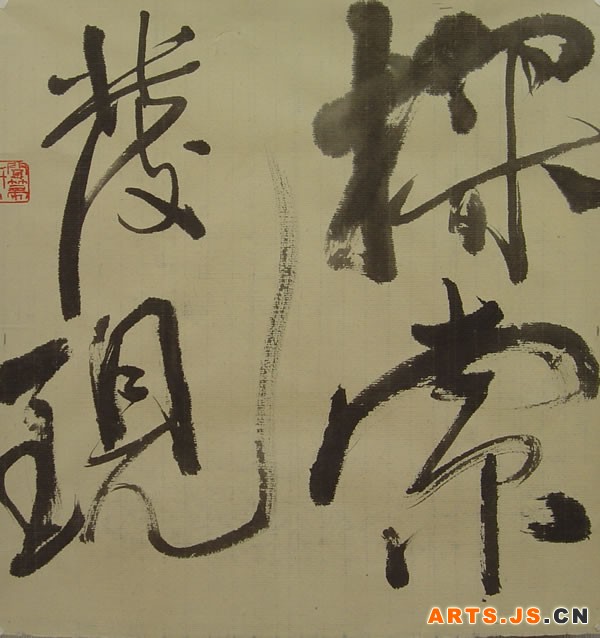 探索
發現
ARTS.JS.CN